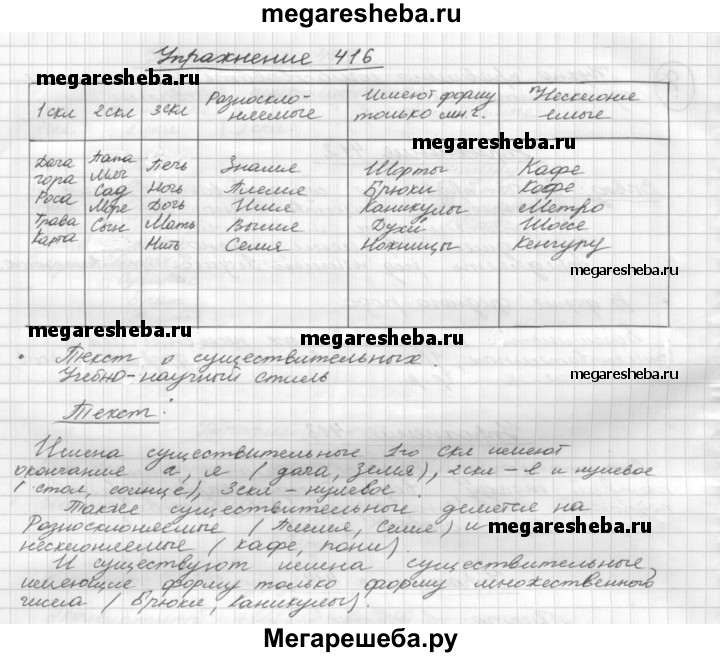 megaresheba.ru
Упражнение 416
megaresheba.ru
1 скл 2 скл 3 скл Разноскло- Имеют форму Несклоня
няемые только мн.ч. емые
megaresheba.ru
Дача Папа Печь Знамя Шорты Кафе
гора Мяч Ночь Племя Брюки Кофе
Роса Сад Дочь Имя Каникулы Метро
Трава Море Мать Вымя Духи Шоссе
Карта Сын Нить Семя Ножницы Кенгуру
megaresheba.ru
megaresheba.ru
megaresheba.ru
megaresheba.ru
Текст о существительных.
Учебно-научный стиль
Текст:
Имена существительные 1го скл имеют
окончание а, я (дача, земля), 2скл – е и нулевое
(стол, солнце), 3скл – нулевое.
Также существительные делятся на
Разносклоняемые (Племя, Семя) и
megaresheba.ru
несклоняемые (кафе, пони)
И существуют имена существительные,
имеющие форму только форму множественного
числа (Брюки, Каникулы).
Мегарешеба.ру